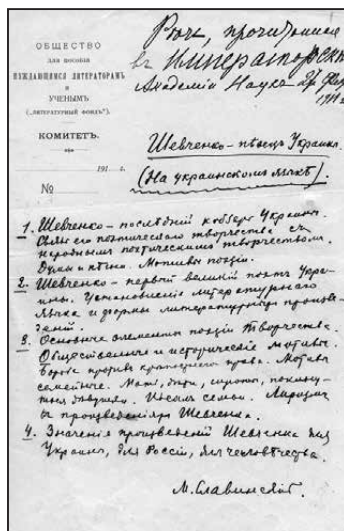 ОБЩЕСТВО
для пособія
НУЖДАЮЩИМСЯ ЛИТЕРАТОРАМЪ
и
УЧЕНЫМЪ
(„ЛИТЕРАТУРНЫЙ ФОНДЪ“).
КОМИТЕТЪ.
191 г.
№
Рѣчь, прочитанная
въ Императорской
Академіи Наукъ 27 Фев
1911 г.
Шевченко – пѣвецъ Украины.
(На украинскомъ языкѣ).
1. Шевченко – послѣдній кобзарь Украины.
Связь его поэтическаго творчества съ
народнымъ поэтическимъ творчествомъ.
Думы и пѣсни. Мотивы поэзіи.
2. Шевченко – первый великій поэтъ Укра-
ины. Установленіе литературнаго
языка и формы литературныхъ произве-
деній.
3. Основные элементы поэзіи творчества.
Общественные и историческіе мотивы.
Борьба противъ крѣпостного права. Мотивы
семейные. Мать, сирота, покину-
тая дѣвушка. Идеалъ семьи. Лиризмъ
въ произведеніяхъ Шевченка.
4. Значенія произведеній Шевченка для
Украины, для Россіи, для человѣчества.
М. Славинскій.